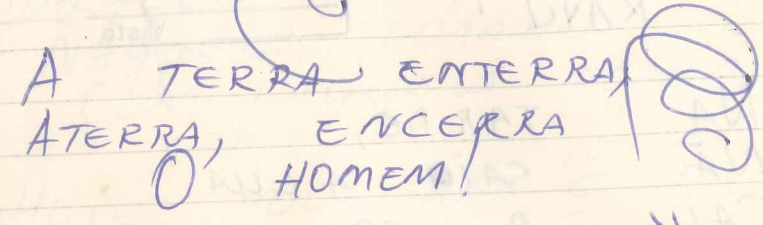 A TERRA ENTERRA,
ATERRA, ENCERRA
O HOMEM!